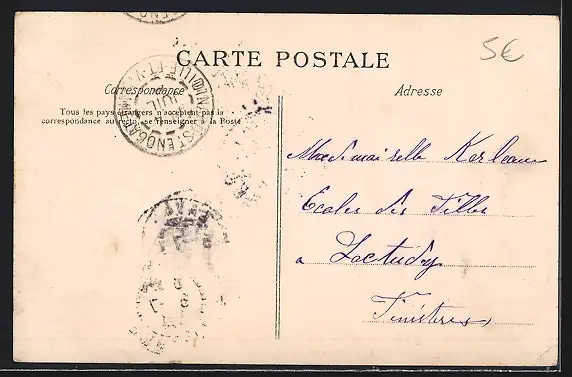 CARTE POSTALE
5€
Correspondance
Adresse
Tous les pays étrangers n'acceptent pas la
correspondance au recto, se renseigner à la Poste
Mademoiselle Kerleau
Ecoles des Filles
a Loctudy
Finistères